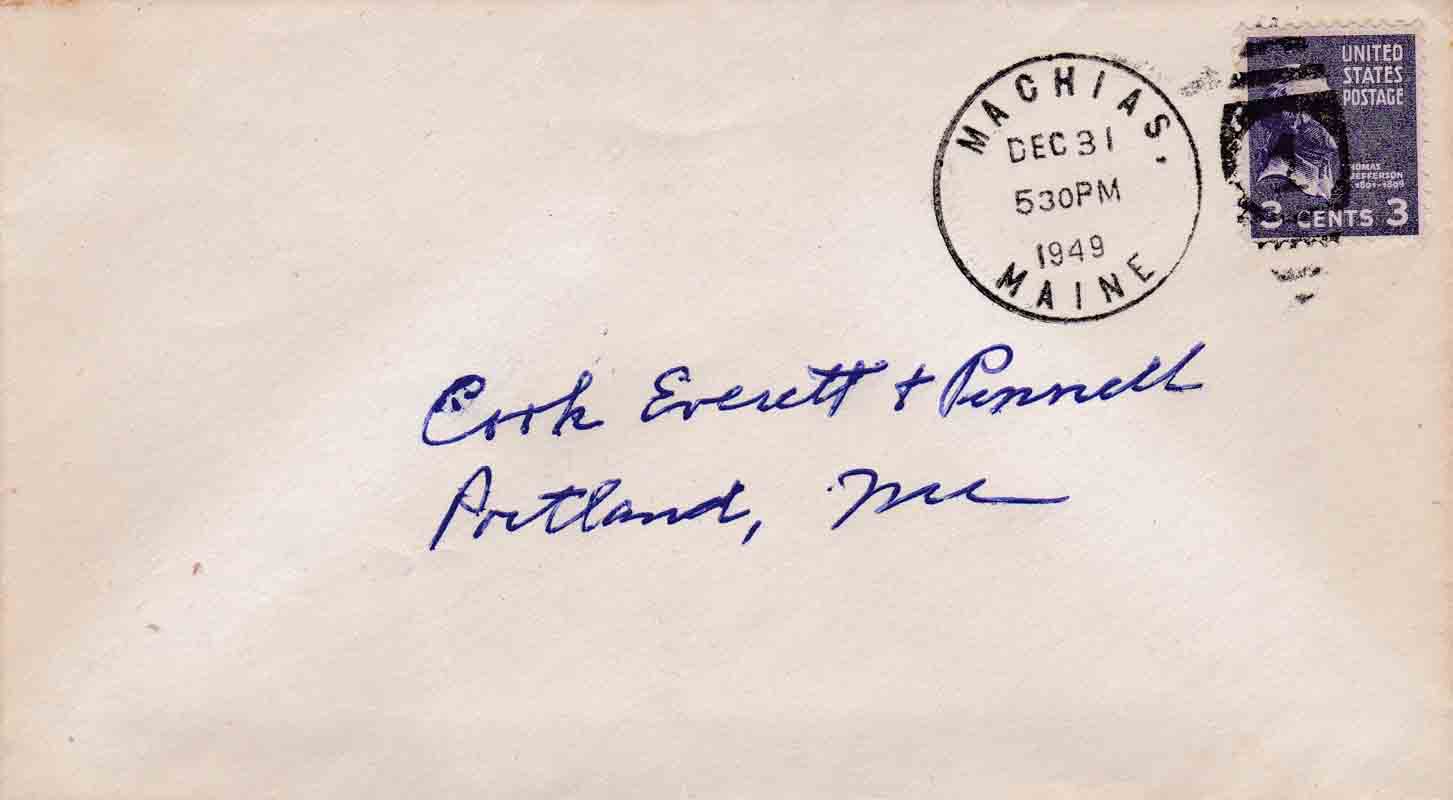 MACHIAS,
DEC 31
530PM
1949
MAINE
UNITED
STATES
POSTAGE
THOMAS
JEFFERSON
1801-1809
3 CENTS 3
Cook Everett + Pennell
Portland, Me